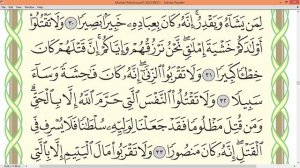 لِمَن يَشَآءُ وَيَقْدِرُ ۚ إِنَّهُۥ كَانَ بِعِبَادِهِۦ خَبِيرًۢا بَصِيرًا ٣٠ وَلَا تَقْتُلُوٓا۟
أَوْلَٰدَكُمْ خَشْيَةَ إِمْلَٰقٍ ۖ نَّحْنُ نَرْزُقُهُمْ وَإِيَّاكُمْ ۚ إِنَّ قَتْلَهُمْ كَانَ
خِطْـًٔا كَبِيرًا ٣١ وَلَا تَقْرَبُوا۟ ٱلزِّنَىٰٓ ۖ إِنَّهُۥ كَانَ فَٰحِشَةً وَسَآءَ
سَبِيلًا ٣٢ وَلَا تَقْتُلُوا۟ ٱلنَّفْسَ ٱلَّتِى حَرَّمَ ٱللَّهُ إِلَّا بِٱلْحَقِّ ۗ
وَمَن قُتِلَ مَظْلُومًا فَقَدْ جَعَلْنَا لِوَلِيِّهِۦ سُلْطَٰنًا فَلَا يُسْرِف فِّى
ٱلْقَتْلِ ۖ إِنَّهُۥ كَانَ مَنصُورًا ٣٣ وَلَا تَقْرَبُوا۟ مَالَ ٱلْيَتِيمِ إِلَّا بِٱلَّتِى